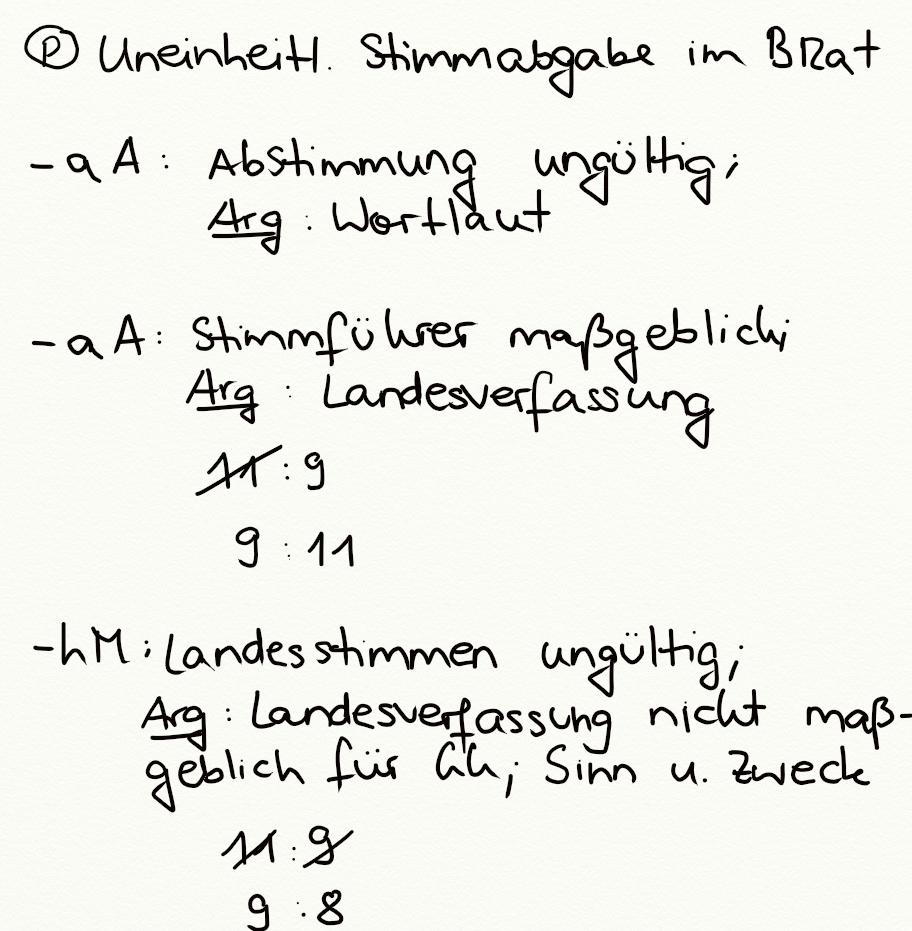 Ⓟ Uneinheitl. Stimmabgabe im BRat
- aA: Abstimmung ungültig;
Arg: Wortlaut
- aA: Stimmführer maßgeblich;
Arg: Landesverfassung
11 : 9
9 : 11
- hM: Landesstimmen ungültig;
Arg: Landesverfassung nicht maß-
geblich für GG; Sinn u. Zweck
11 : 9
9 : 8